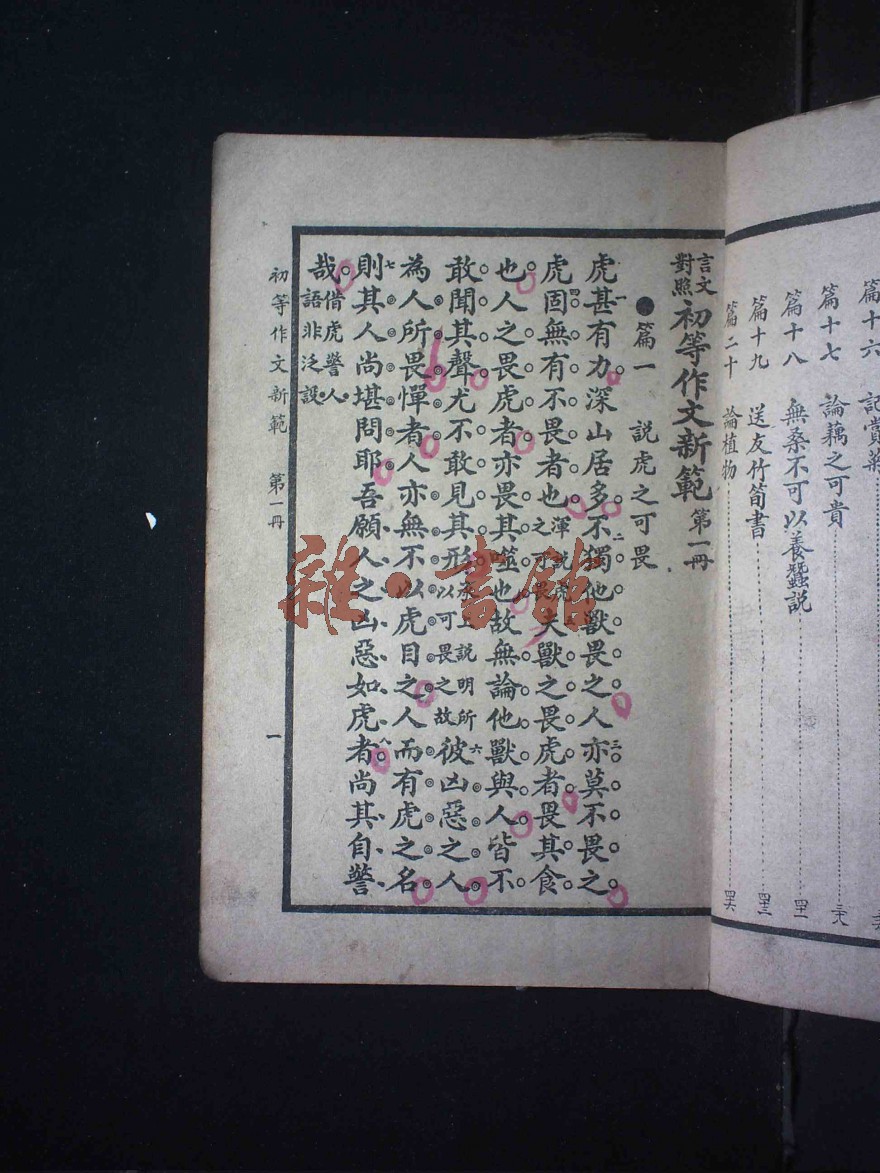 篇十六　記賞菊
篇十七　論藕之可貴……三十八
篇十八　無桑不可以養蠶説……四十一
篇十九　送友竹筍書……四十三
篇二十　論植物……四十六
言文對照 初等作文新範 第一冊
●篇一　説虎之可畏
虎甚有力深山居多不獨他獸畏之人亦莫不畏之
虎固無有不畏者也渾説虎之可畏夫獸之畏虎者畏其食
也人之畏虎者亦畏其噬也故無論他獸與人皆不
敢聞其聲尤不敢見其形承上説明所以可畏之故彼凶惡之人
為人所畏憚者人亦無不以虎目之人而有虎之名
則其人尚堪問耶吾願人之凶惡如虎者尚其自警
哉借虎警人語非泛設
初等作文新範　第一冊　一
雜·書館